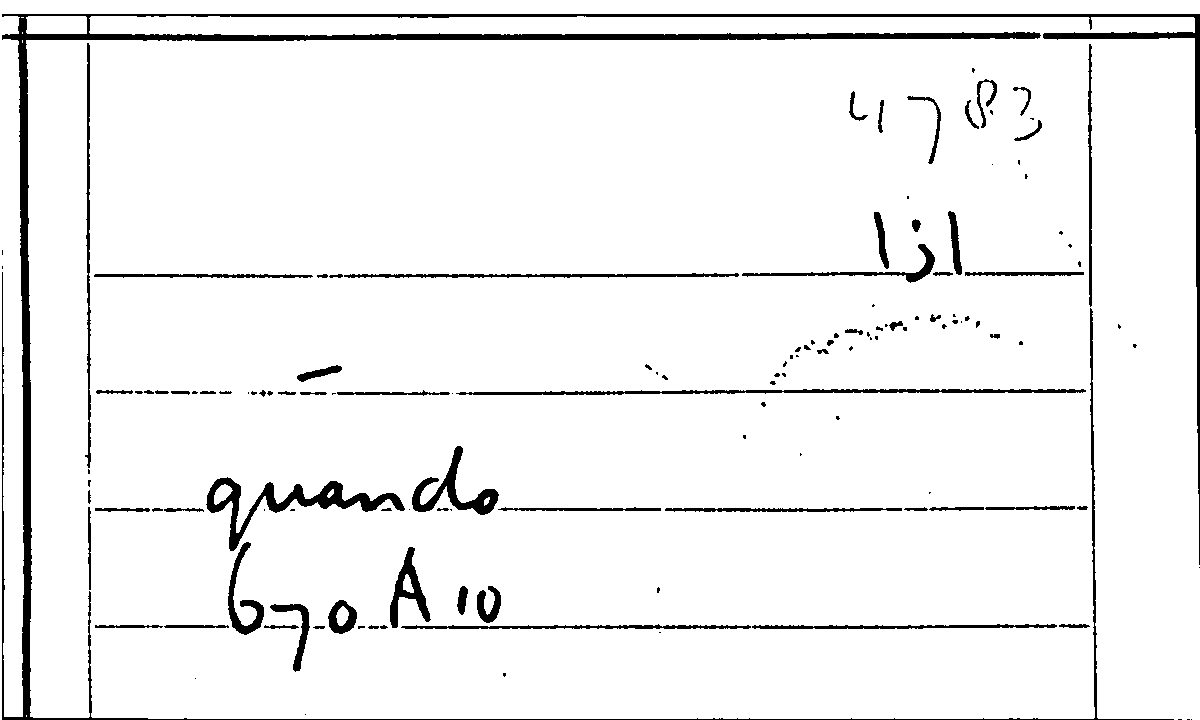 4783
اذا
–
quando
670 A 10